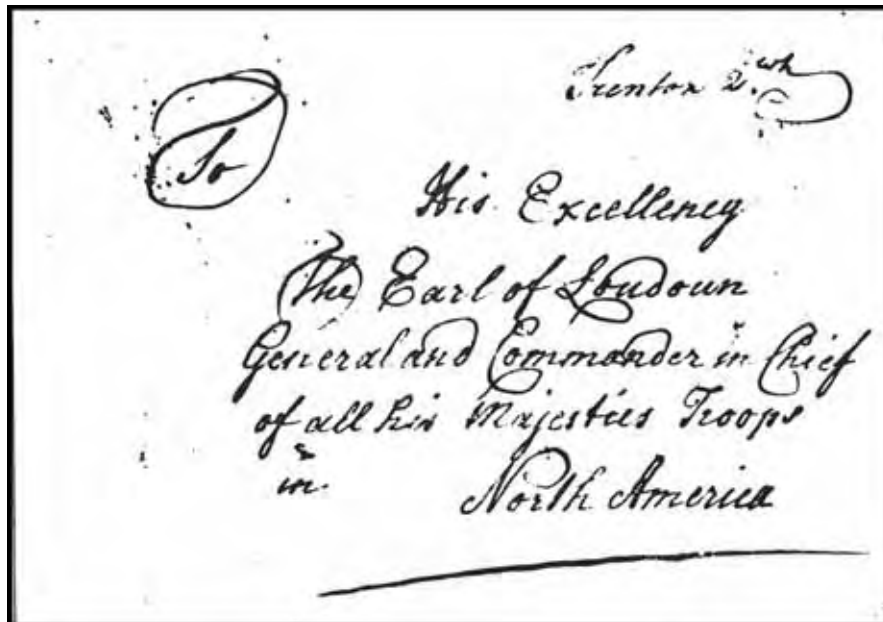 Trenton 2
To
His Excellency
The Earl of Loudoun
General and Commander in Chief
of all his Majesties Troops
in
North America